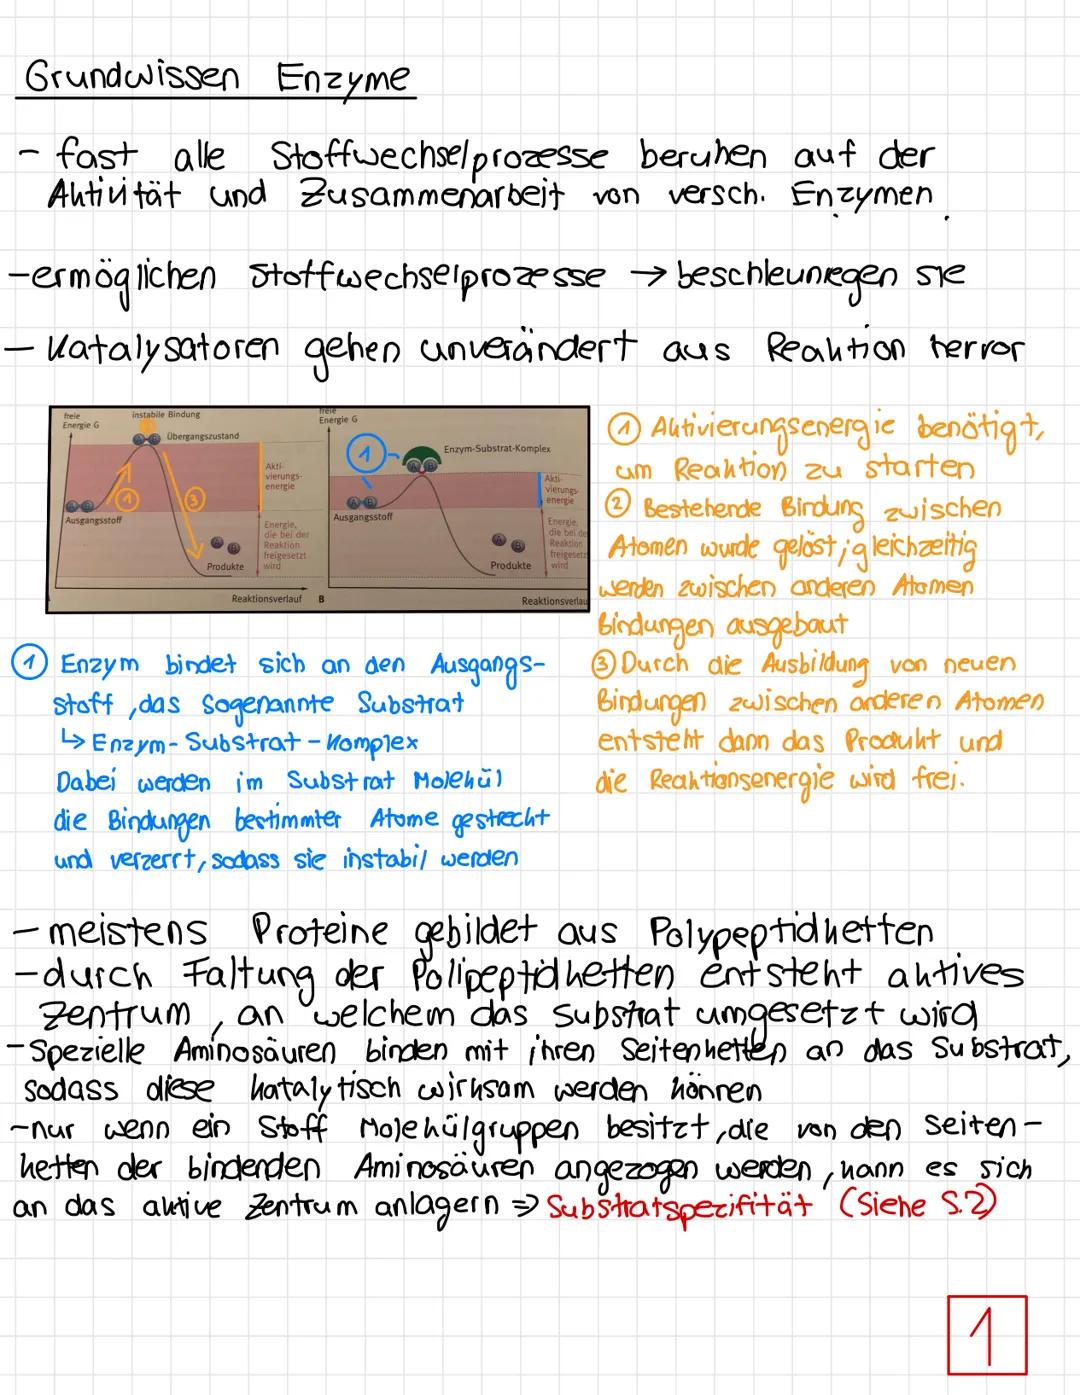 Grundwissen Enzyme
- fast alle Stoffwechselprozesse beruhen auf der
Aktivität und Zusammenarbeit von versch. Enzymen.
-ermöglichen Stoffwechselprozesse → beschleunegen sie
- Katalysatoren gehen unverändert aus Reaktion herror
freie
Energie G
instabile Bindung
Übergangszustand
A B
Akti-
vierungs-
energie
A B
1
3
Ausgangsstoff
Energie,
die bei der
Reaktion
freigesetzt
wird
A
B
Produkte
Reaktionsverlauf
B
freie
Energie G
1
Enzym-Substrat-Komplex
A B
Akti-
vierungs-
energie
A B
Ausgangsstoff
Energie,
die bei de
Reaktion
freigesetz
wird
A
B
Produkte
Reaktionsverlau
① Aktivierungsenergie benötigt,
um Reaktion zu starten
② Bestehende Bindung zwischen
Atomen wurde gelöst, gleichzeitig
werden zwischen anderen Atomen
Bindungen ausgebaut
③ Durch die Ausbildung von neuen
Bindungen zwischen anderen Atomen
entsteht dann das Produkt und
die Reaktionsenergie wird frei.
① Enzym bindet sich an den Ausgangs-
stoff, das sogenannte Substrat
↳ Enzym-Substrat-Komplex
Dabei werden im Substrat Molekül
die Bindungen bestimmter Atome gestrecht
und verzerrt, sodass sie instabil werden
- meistens Proteine gebildet aus Polypeptidketten
-durch Faltung der Polipeptidketten entsteht aktives
Zentrum, an welchem das Substrat umgesetzt wird
-Spezielle Aminosäuren binden mit ihren Seitenketten an das Substrat,
sodass diese katalytisch wirksam werden können
-nur wenn ein Stoff Molekülgruppen besitzt, die von den Seiten-
ketten der bindenden Aminosäuren angezogen werden, kann es sich
an das aktive Zentrum anlagern ⇒ Substratspezifität (Siehe S.2)
1